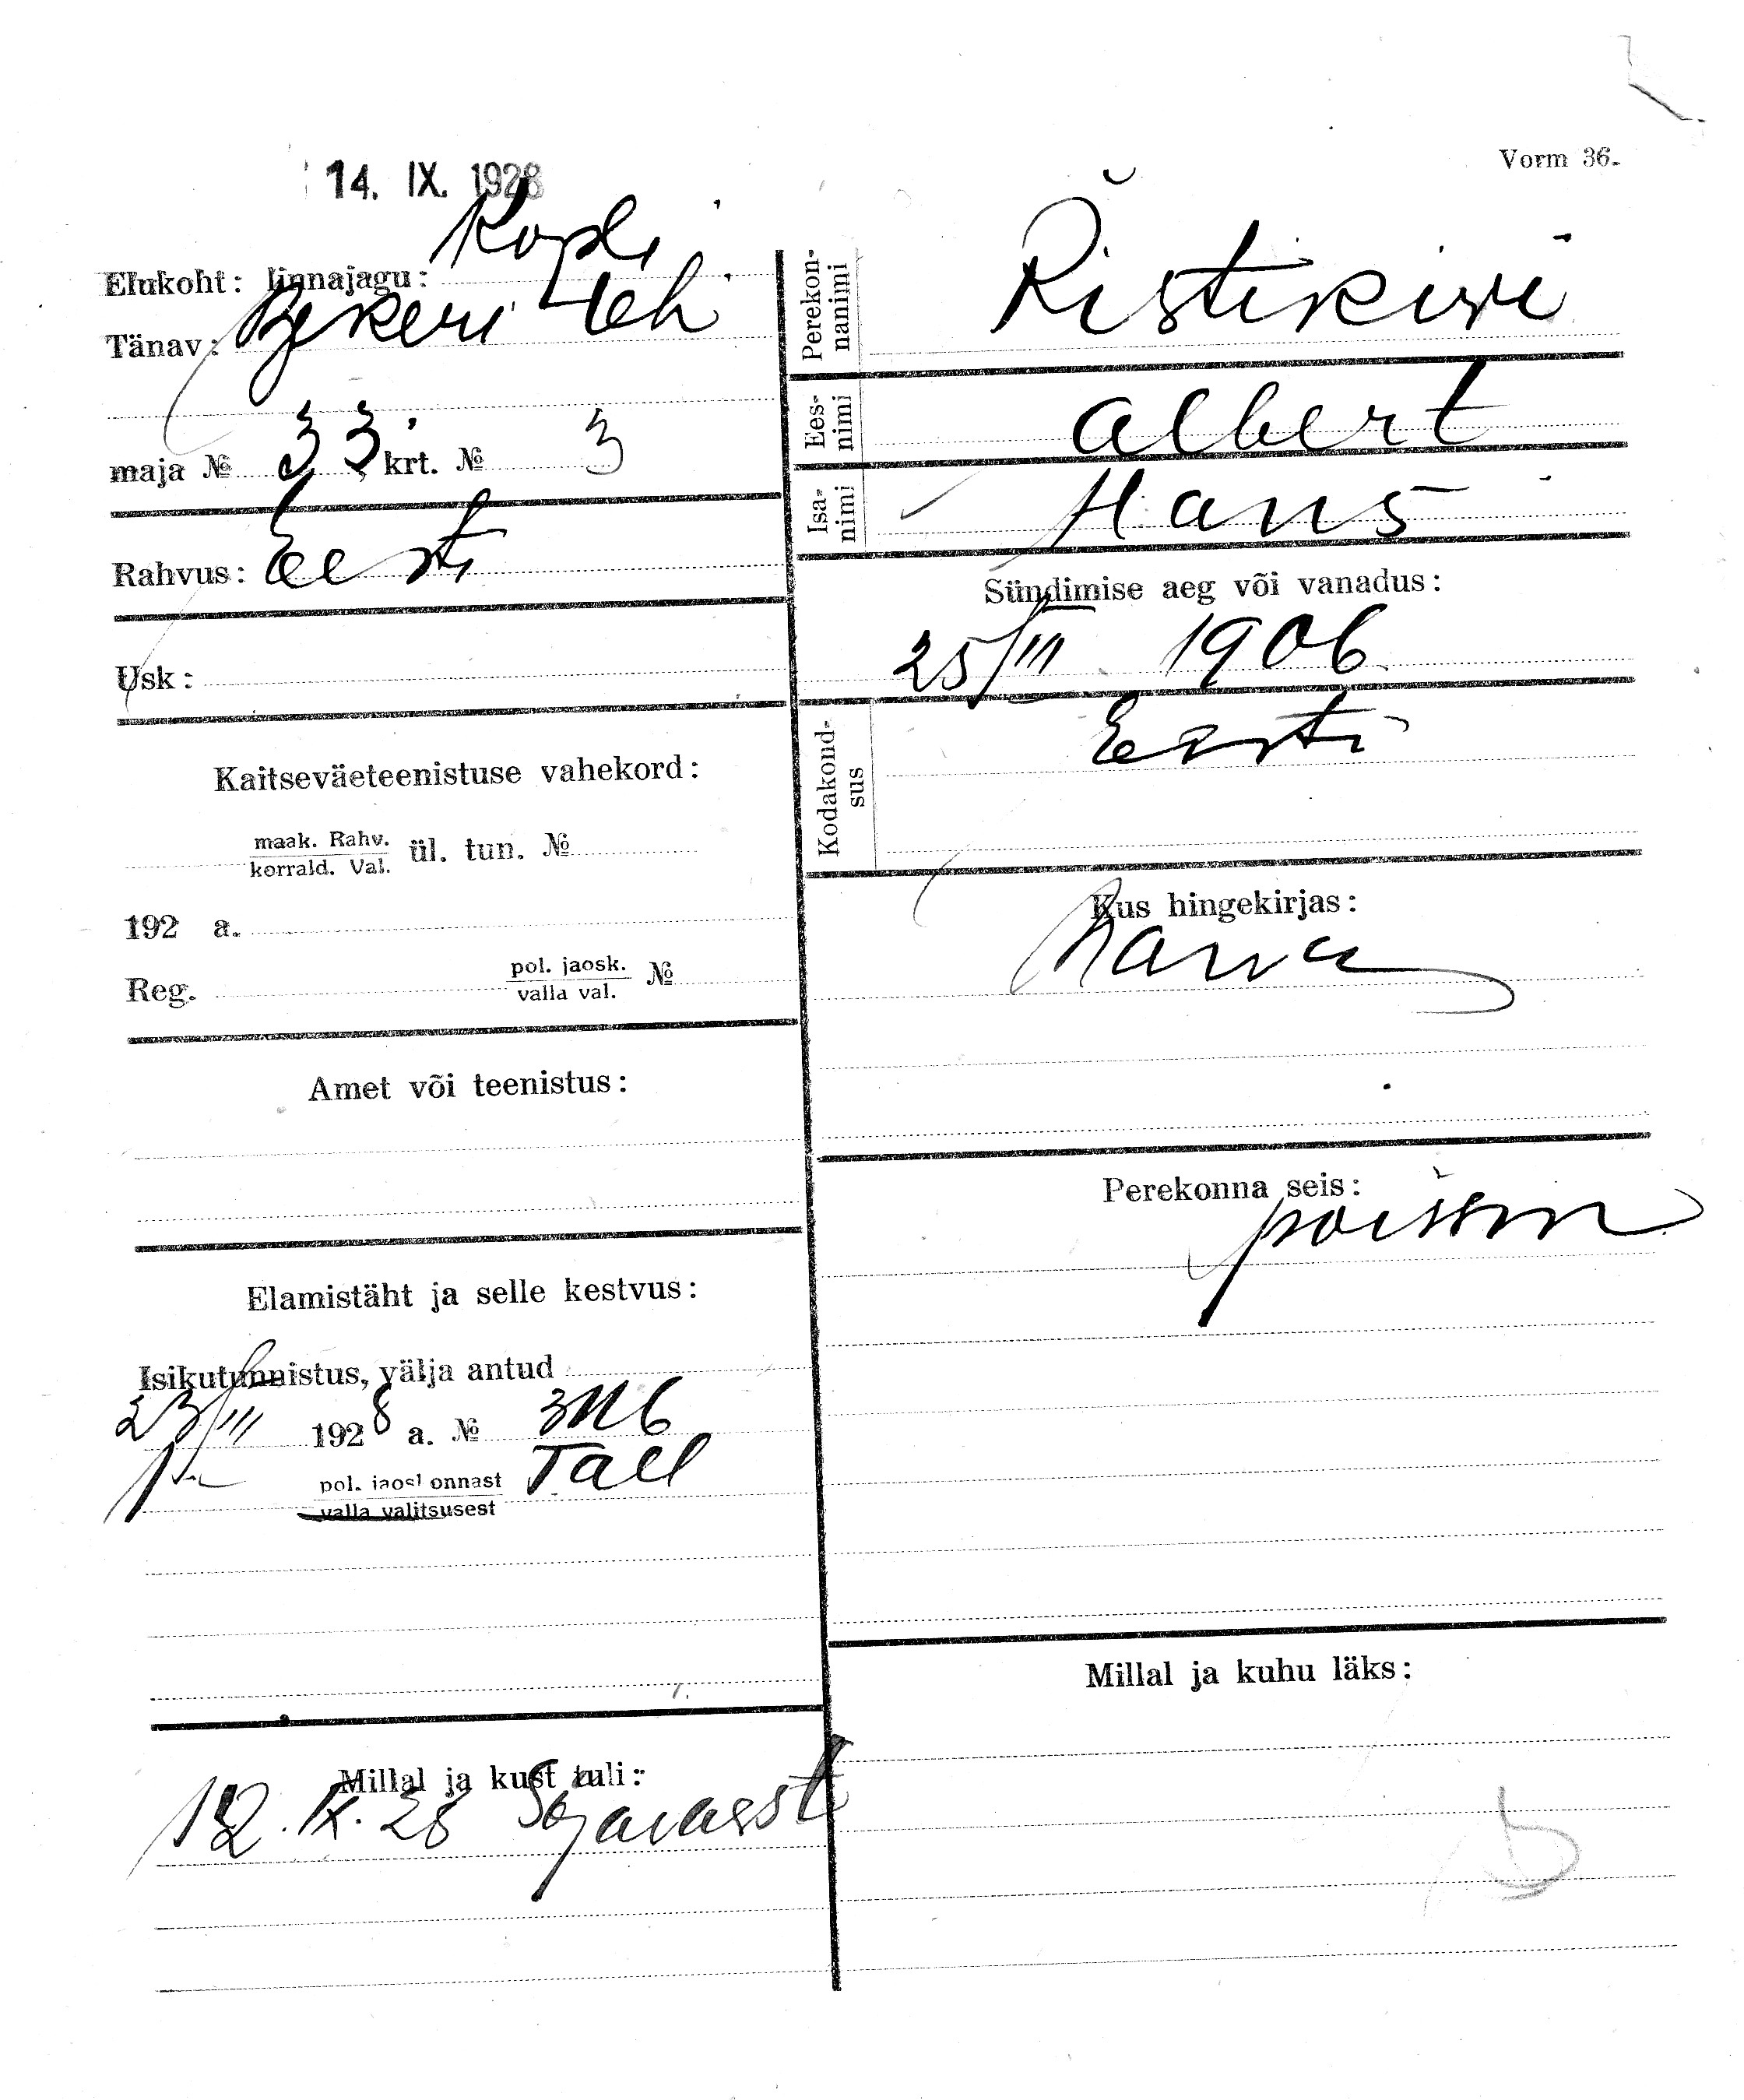 14. IX. 1928
Vorm 36.
Elukoht: linnajagu: Kopli
Tänav: Bekeri teh
maja № 33 krt. № 3
Rahvus: Eesti
Usk:
Kaitseväeteenistuse vahekord:
maak. Rahv.
korrald. Val.
ül. tun. №
192 a.
Reg. pol. jaosk. №
valla val.
Amet või teenistus:
Elamistäht ja selle kestvus:
Isikutunnistus, välja antud
23/III 1928 a. № 3116
pol. jaoskonnast Tall
valla valitsusest
Millal ja kust tuli:
12. IX. 28 Sõjaväest
Perekon-
nanimi
Ristikivi
Ees-
nimi
Albert
Isa-
nimi
Hans
Sündimise aeg või vanadus:
25/III 1906
Kodakond-
sus
Eesti
Kus hingekirjas:
Narva
Perekonna seis:
poissm
Millal ja kuhu läks: